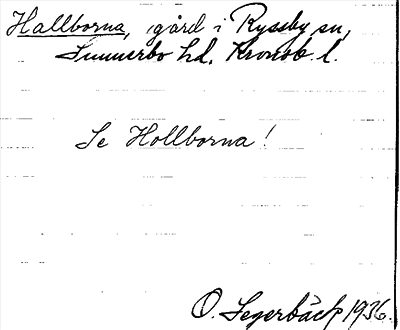 Hallborna, gård i Ryssby sn,
Sunnerbo hd. Kronob. l.
Se Hollborna!
O. Segerbäck 1936.